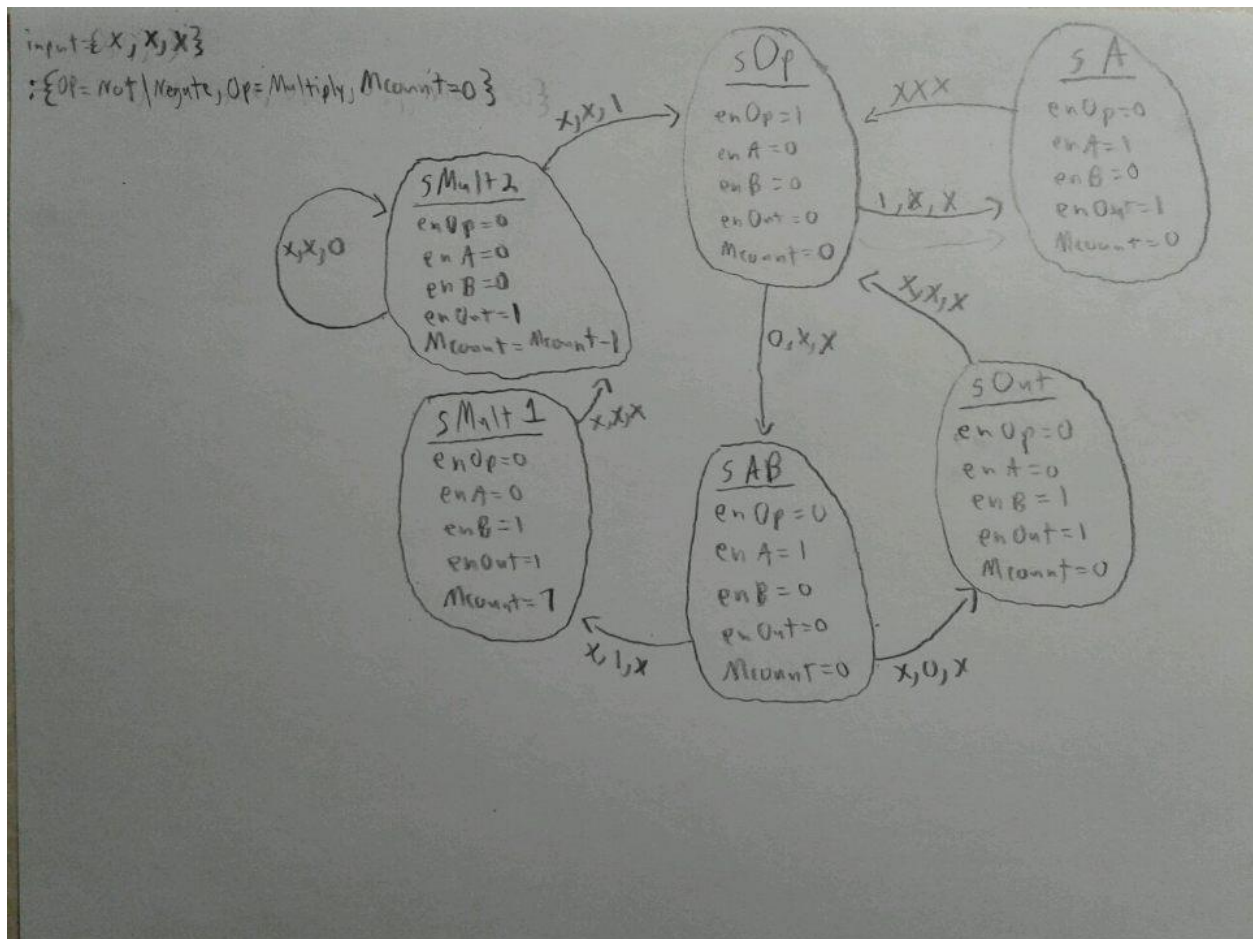 input={X, X, X}
:{OP= Not|Negate, Op= Multiply, Mcount=0}
sOp
enOp=1
enA=0
enB=0
enOut=0
Mcount=0
sA
enOp=0
enA=1
enB=0
enOut=1
Mcount=0
XXX
1,X,X
x,x,1
sMult2
enOp=0
enA=0
enB=0
enOut=1
Mcount=Mcount-1
x,x,0
X,X,X
0,X,X
sMult1
enOp=0
enA=0
enB=1
enOut=1
Mcount=7
x,x,x
sAB
enOp=0
enA=1
enB=0
enOut=0
Mcount=0
sOut
enOp=0
enA=0
enB=1
enOut=1
Mcount=0
x,1,x
x,0,x